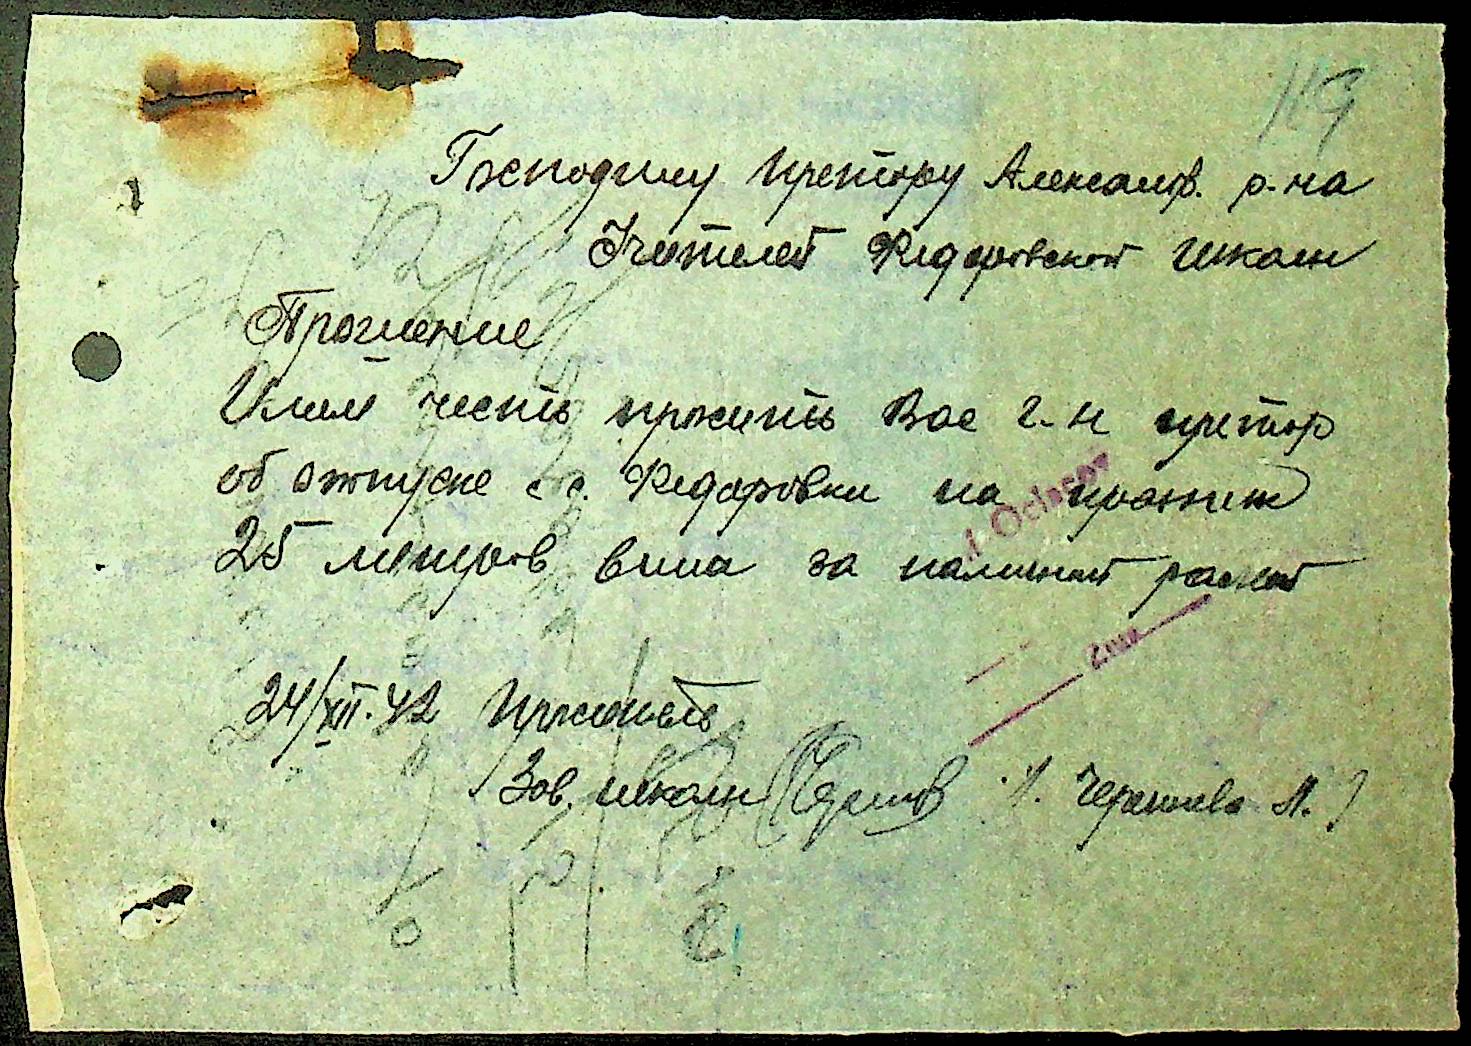 119
Господину претору Александ. р-на
Учителей Федоровской школы
Прошение
Имеем честь просить Вас г-н претор
об отпуске с с. Федоровки на праздник
25 литров вина за наличный расчет
24/XII.42 Просители
Зав. школы